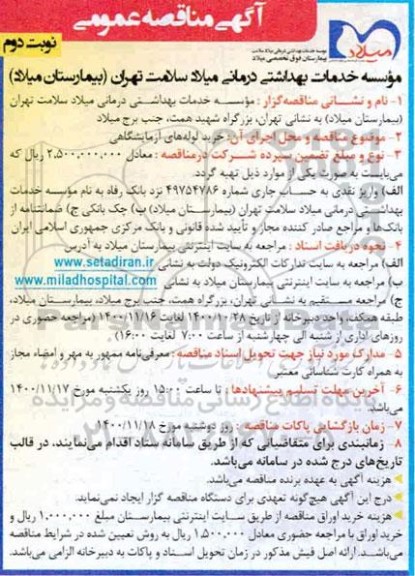 آگهی مناقصه عمومی
نوبت دوم
میلاد
موسسه خدمات بهداشتی درمانی میلاد سلامت
بیمارستان فوق تخصصی میلاد
مؤسسه خدمات بهداشتی درمانی میلاد سلامت تهران (بیمارستان میلاد)
۱- نام و نشانی مناقصه‌گزار: مؤسسه خدمات بهداشتی درمانی میلاد سلامت تهران
(بیمارستان میلاد) به نشانی تهران، بزرگراه شهید همت، جنب برج میلاد
۲- موضوع مناقصه و محل اجرای آن: خرید لوله‌های آزمایشگاهی
۳- نوع و مبلغ تضمین سپرده شرکت در مناقصه: معادل ۲,۵۰۰,۰۰۰,۰۰۰ ریال که
می‌بایست به صورت یکی از موارد ذیل تهیه گردد.
الف) واریز نقدی به حساب جاری شماره ۴۹۷۵۴۷۸۶ نزد بانک رفاه به نام مؤسسه خدمات
بهداشتی درمانی میلاد سلامت تهران (بیمارستان میلاد) ب) چک بانکی ج) ضمانتنامه از
بانک‌ها و مراجع صادر کننده مجاز و تأیید شده قانونی و بانک مرکزی جمهوری اسلامی ایران
۴- نحوه دریافت اسناد: مراجعه به سایت اینترنتی بیمارستان میلاد به آدرس
الف) مراجعه به سایت تدارکات الکترونیک دولت به نشانی www.setadiran.ir
ب) مراجعه به سایت اینترنتی بیمارستان میلاد به نشانی www.miladhospital.com
ج) مراجعه مستقیم به نشانی تهران، بزرگراه همت، جنب برج میلاد، بیمارستان میلاد،
طبقه همکف، واحد دبیرخانه از تاریخ ۱۴۰۰/۱۰/۲۸ لغایت ۱۴۰۰/۱۱/۱۶ (مراجعه حضوری در
روزهای اداری از شنبه الی چهارشنبه از ساعت ۷:۰۰ لغایت ۱۶:۰۰)
۵- مدارک مورد نیاز جهت تحویل اسناد مناقصه: معرفی‌نامه ممهور به مهر و امضاء مجاز
به همراه کارت شناسائی معتبر
۶- آخرین مهلت تسلیم پیشنهادها: تا ساعت ۱۵:۰۰ روز یکشنبه مورخ ۱۴۰۰/۱۱/۱۷
می‌باشد.
۷- زمان بازگشایی پاکات مناقصه: روز دوشنبه مورخ ۱۴۰۰/۱۱/۱۸
۸- زمانبندی برای متقاضیانی که از طریق سامانه ستاد اقدام می‌نمایند، در قالب
تاریخ‌های درج شده در سامانه می‌باشد.
هزینه آگهی به عهده برنده مناقصه می‌باشد.
درج این آگهی هیچ‌گونه تعهدی برای دستگاه مناقصه گزار ایجاد نمی‌نماید.
هزینه خرید اوراق مناقصه از طریق سایت اینترنتی بیمارستان مبلغ ۱,۰۰۰,۰۰۰ ریال و
خرید اوراق با مراجعه حضوری معادل ۱,۵۰۰,۰۰۰ ریال به روش تعیین شده در شرایط مناقصه
می‌باشد. ارائه اصل فیش مذکور در زمان تحویل اسناد و پاکات به دبیرخانه الزامی می‌باشد.